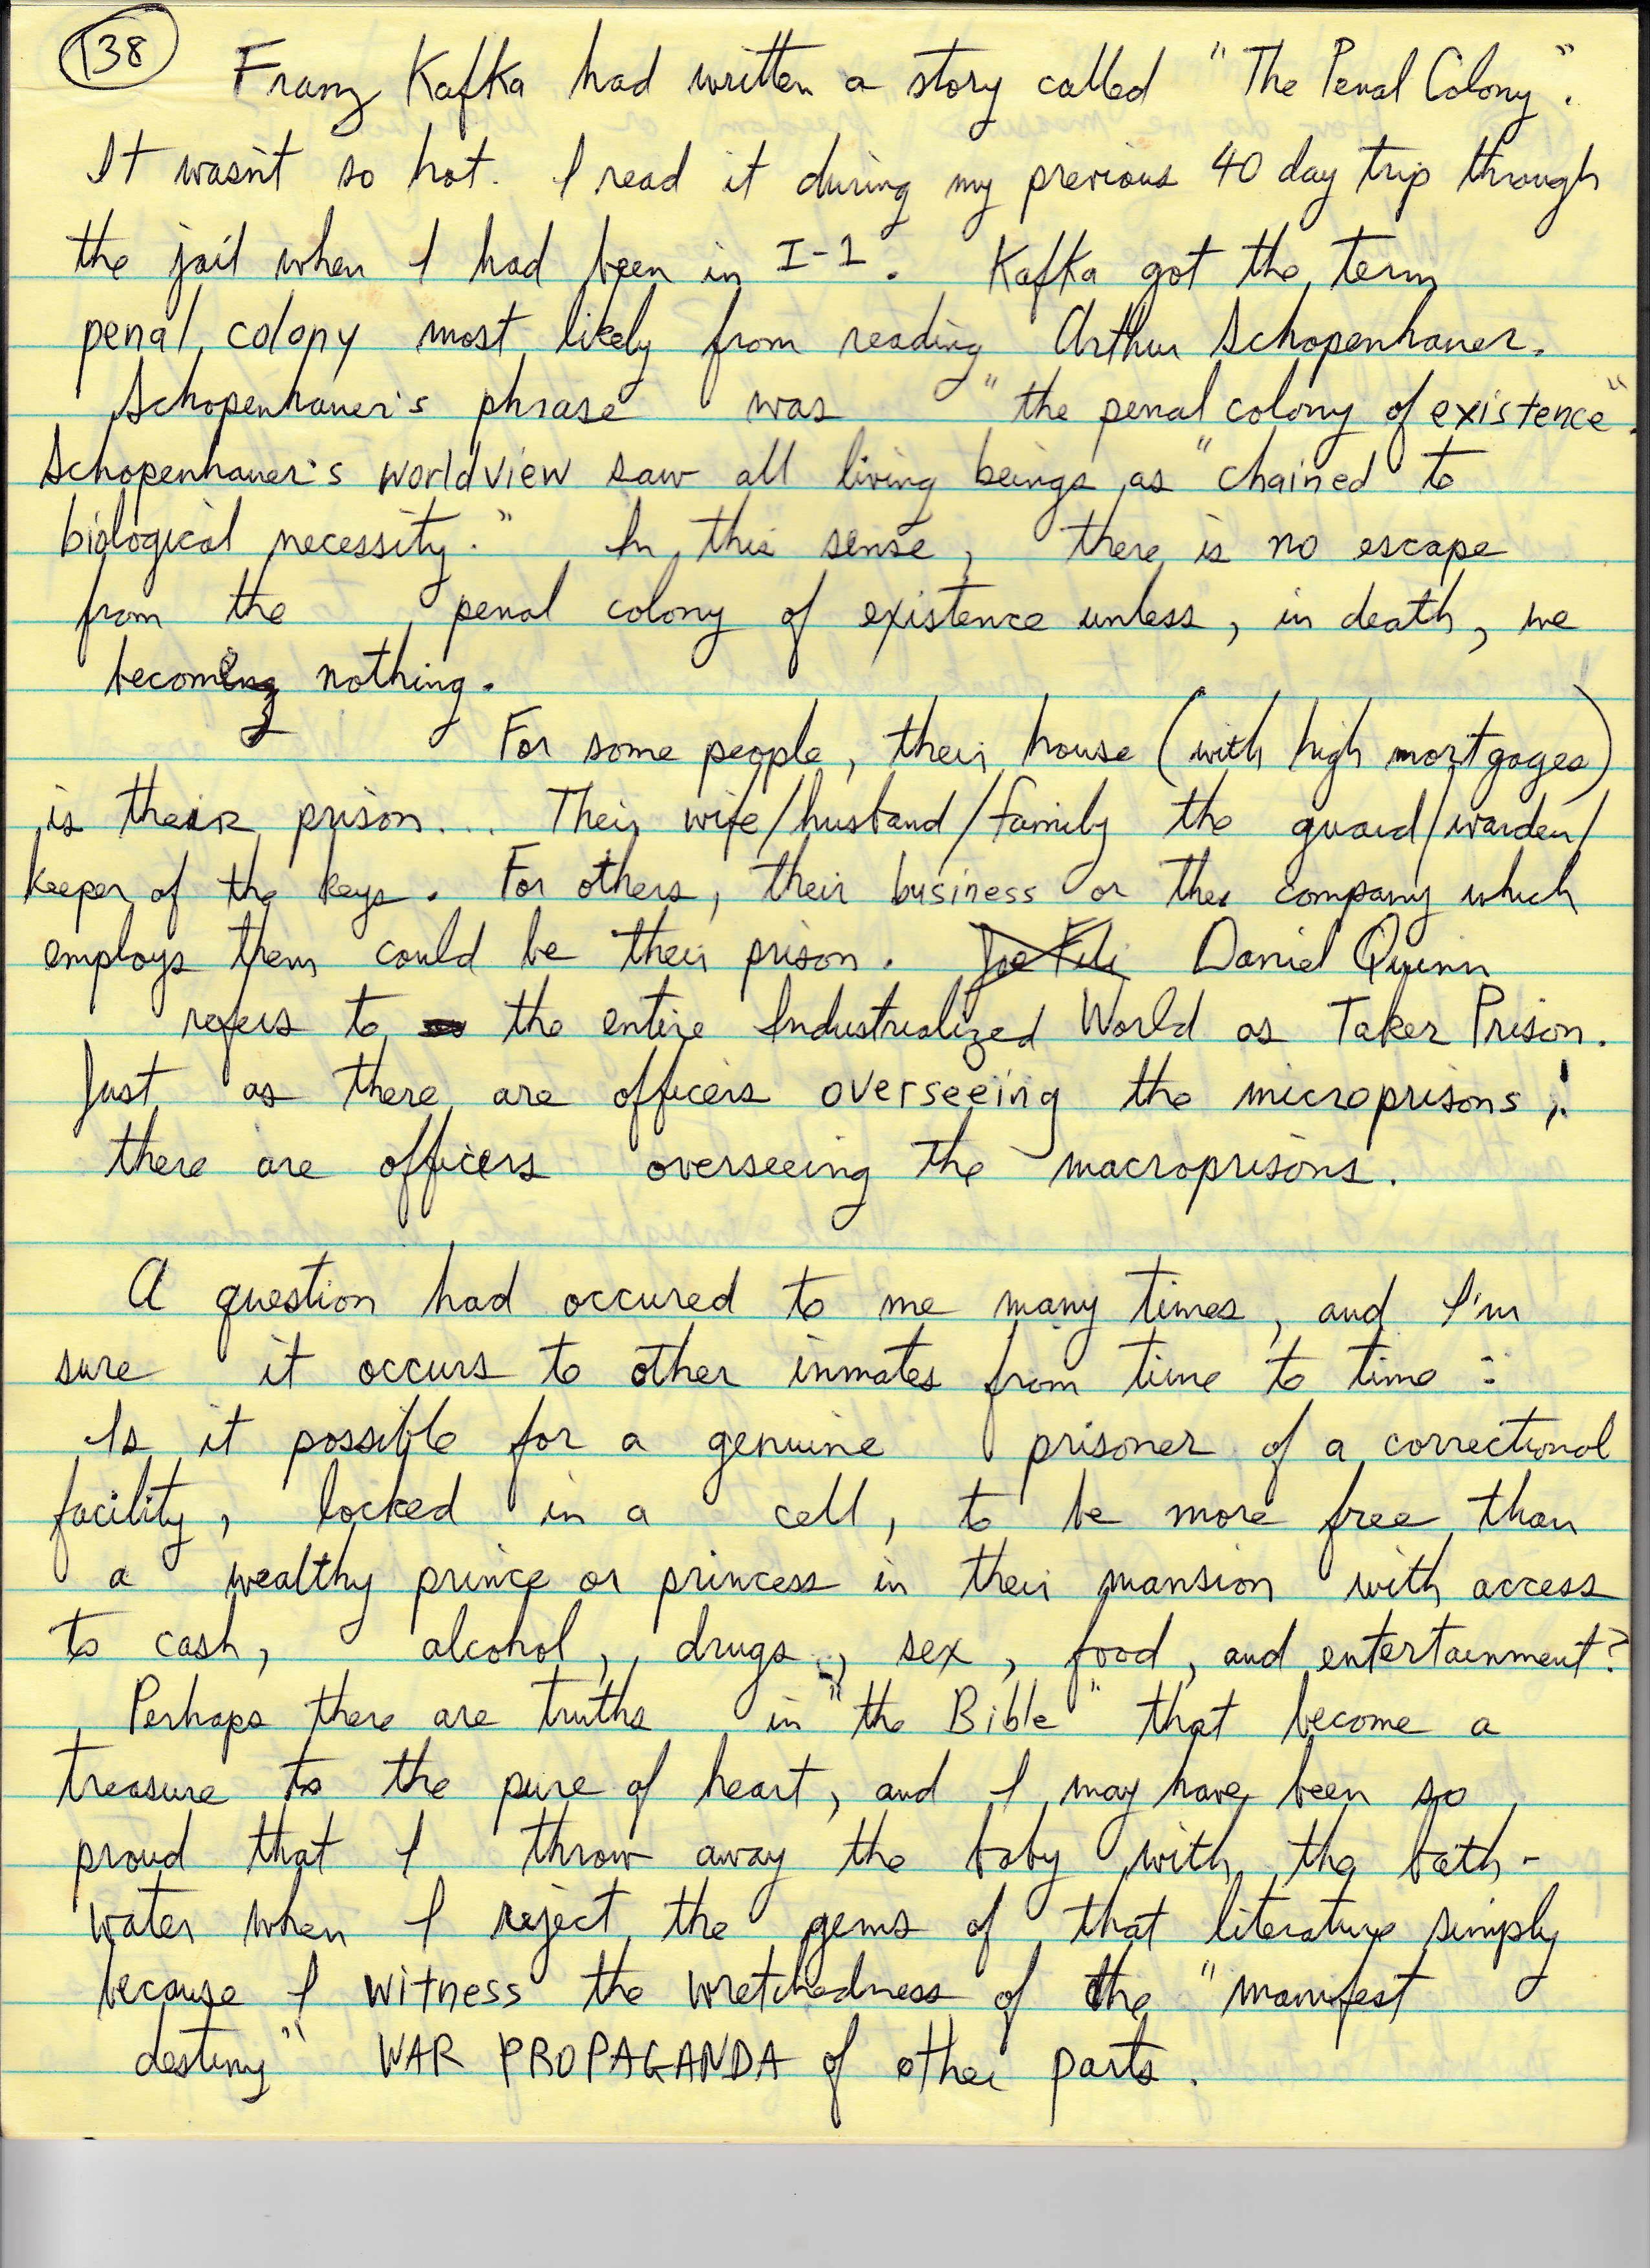 138
Franz Kafka had written a story called "The Penal Colony".
It wasn't so hot. I read it during my previous 40 day trip through
the jail when I had been in I-1. Kafka got the term
penal colony most likely from reading Arthur Schopenhauer.
Schopenhauer's phrase was "the penal colony of existence".
Schopenhauer's worldview saw all living beings as "chained to
biological necessity." In this sense, there is no escape
from the penal colony of existence unless, in death, we
become nothing.
For some people, their house (with high mortgages)
is their prison... Their wife/husband/family the guard/warden/
keeper of the keys. For others, their business or the company which
employs them could be their prison. Daniel Quinn
refers to the entire Industrialized World as Taker Prison.
Just as there are officers overseeing the microprisons,
there are officers overseeing the macroprisons.
A question had occured to me many times, and I'm
sure it occurs to other inmates from time to time :
Is it possible for a genuine prisoner of a correctional
facility, locked in a cell, to be more free than
a wealthy prince or princess in their mansion with access
to cash, alcohol, drugs, sex, food, and entertainment?
Perhaps there are truths in "the Bible" that become a
treasure to the pure of heart, and I may have been so
proud that I throw away the baby with the bath-
water when I reject the gems of that literature simply
because I witness the wretchedness of the "manifest
destiny" WAR PROPAGANDA of other parts.